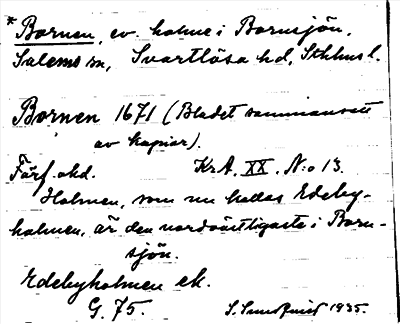 *Bornen, ev. holme i Bornsjön,
Salems sn, Svartlösa hd, Sthlms l.
Bornen 1671 (Bladet sammansatt
av kopior).
Förf. okd. KrA. XX. N:o 13.
Holmen, som nu kallas Edeby-
holmen, är den nordöstligaste i Born-
sjön.
Edebyholmen ek.
G. 75. S. Sundqvist 1935.